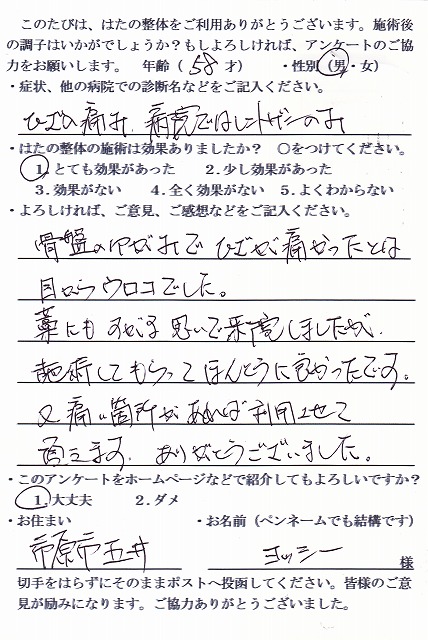 このたびは、はたの整体をご利用ありがとうございます。施術後
の調子はいかがでしょうか？もしよろしければ、アンケートのご協
力をお願いします。 年齢（ 58 才） ・性別（男・女）
・症状、他の病院での診断名などをご記入ください。
ひざの痛み、病院ではレントゲンのみ
・はたの整体の施術は効果ありましたか？ ○をつけてください。
1.とても効果があった 2.少し効果があった
3.効果がない 4.全く効果がない 5.よくわからない
・よろしければ、ご意見、ご感想などをご記入ください。
骨盤のゆがみで ひざが痛かったとは
目からウロコでした。
藁にもすがる思いで来院しましたが、
施術してもらってほんとうに良かったです。
又痛い箇所があれば利用させて
貰えます。ありがとうございました。
・このアンケートをホームページなどで紹介してもよろしいですか？
1.大丈夫 2.ダメ
・お住まい ・お名前（ペンネームでも結構です）
市原市五井 ヨッシー 様
切手をはらずにそのままポストへ投函してください。皆様のご意
見が励みになります。ご協力ありがとうございました。